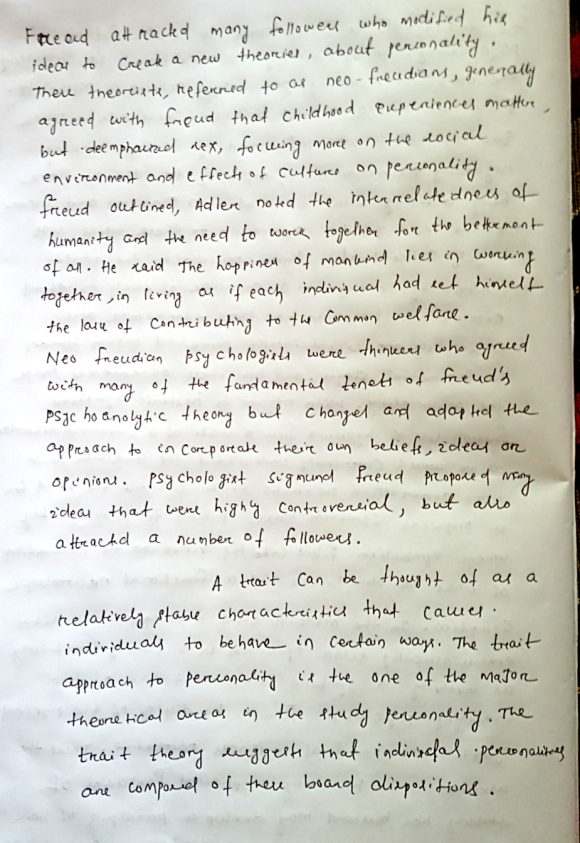 Freoud attracked many followers who modified his
ideas to Creak a new theories, about personality.
These theorists, referred to as neo-freudians, generally
agreed with froud that childhood experiences matter,
but deemphasized sex, focusing more on the social
environment and effects of culture on personality.
freud outlined, Adler noted the interrelatedness of
humanity and the need to work together for the betterment
of all. He said The happines of mankind lies in working
together, in living as if each individual had set himself
the task of Contributing to the Common welfare.
Neo freudian psychologists were thinkers who agreed
with many of the fundamental tenets of freud's
psychoanalytic theory but changed and adapted the
approach to incorporeate their own beliefs, ideas or
opinions. psychologist sigmund freud proposed many
ideas that were highly Controvercial, but also
attrachd a number of followers.
A trait Can be thought of as a
relatively stable characteristics that causes.
individuals to behave in certain ways. The trait
approach to personality is the one of the major
theoretical areas in the study personality. The
trait theory suggests that personalities
are composed of these board dispositions.